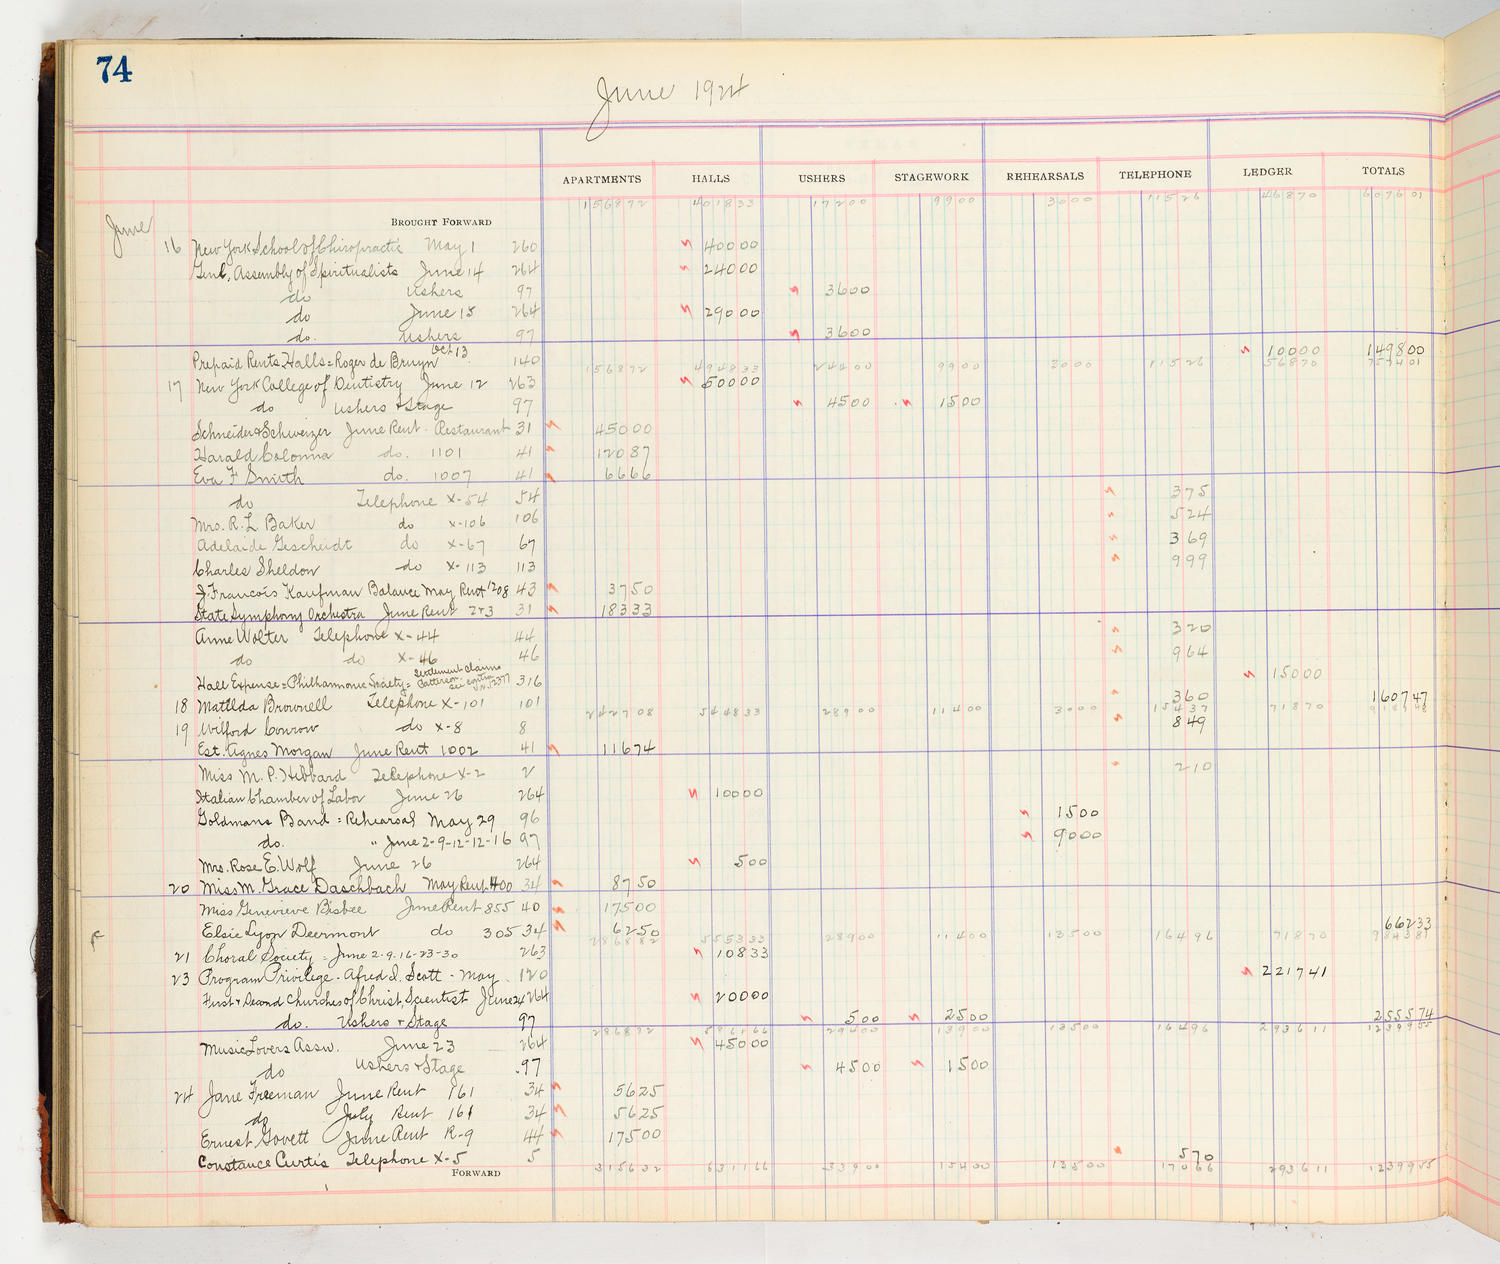 74
June 1924
APARTMENTS HALLS USHERS STAGEWORK REHEARSALS TELEPHONE LEDGER TOTALS
June BROUGHT FORWARD 156872 401833 17200 9900 3000 11526 46870 607601
16 New York School of Chiropractic May 1 260 40000
Genl. Assembly of Spiritualists June 14 264 24000
do Ushers 97 3600
do June 15 264 29000
do. Ushers 97 3600
Prepaid Rents, Halls = Roger de Bruyn Oct 13 140 10000 149800
156872 494833 24400 9900 3000 11526 56870 757401
17 New York College of Dentistry June 12 263 50000
do Ushers & Stage 97 4500 1500
Schneider & Schweizer June Rent - Restaurant 31 45000
Harald Colonna do. 1101 41 12087
Eva F Smith do. 1007 41 6666
do Telephone X-54 54 375
Mrs. R. L. Baker do X-106 106 524
Adelaide Gescheidt do X-67 67 369
Charles Sheldon do X-113 113 999
J. Francois Kaufman Balance May Rent 1208 43 3750
State Symphony Orchestra June Rent 2+3 31 18333
Anne Wolter Telephone X-44 44 320
do do X-46 46 964
Hall Expense = Philharmonic Society = Settlement claims see contra 316 15000
18 Matilda Brownell Telephone X-101 101 360 160747
242708 544833 28900 11400 3000 15437 71870 918148
19 Wilford Conrow do X-8 8 849
Est. Agnes Morgan June Rent 1002 41 11674
Miss M. P. Hibbard Telephone X-2 2 210
Italian Chamber of Labor June 26 264 10000
Goldmans Band = Rehearsal May 29 96 1500
do. " June 2-9-12-12-16 97 9000
Mrs. Rose E. Wolf June 26 264 500
20 Miss M. Grace Daschbach May Rent 400 34 8750
Miss Genevieve Bisbee June Rent 855 40 17500
Elsie Lyon Deermont do 305 34 6250 66233
286882 555333 28900 11400 13500 16496 71870 984381
21 Choral Society - June 2-9-16-23-30 263 10833
23 Program Privilege - Afred I. Scott - May 120 221741
First & Second Churches of Christ, Scientist June 24 264 20000
do. Ushers & Stage 97 500 2500 255574
286882 586166 29400 13900 13500 16496 293611 1239955
Music Lovers Assn. June 23 264 45000
do Ushers & Stage 97 4500 1500
24 Jane Freeman June Rent 161 34 5625
do July Rent 161 34 5625
Ernest Govett June Rent R-9 44 17500
Constance Curtis Telephone X-5 5 570
FORWARD 315632 631166 33900 15400 13500 17066 293611 1239955